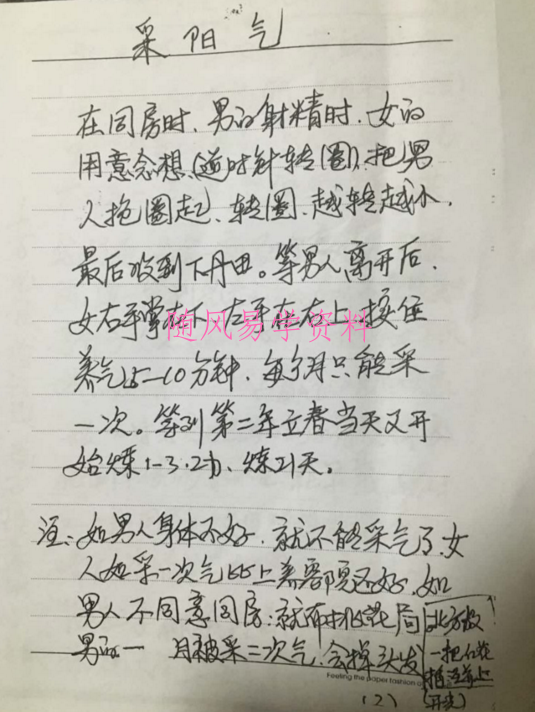 采阳气
在同房时、男的射精时、女的
用意念想、(逆时针转圈)、把男
人抱圈起、转圈、越转越小、
最后收到下丹田。等男人离开后、
女右手掌在下、左手在右上、按住
养气5—10分钟、每个月只能采
一次。等到第二年立春当天又开
始炼1-3.2功、炼21天。
注:如男人身体不好、就不能采气了、女
人如采一次气比上美容院还好、如
男人不同意同房、就布桃花局
男的一月被采二次气、会掉头发
北方放
一把红花
插
上
Feeling the paper fashion
(2)
随风易学资料